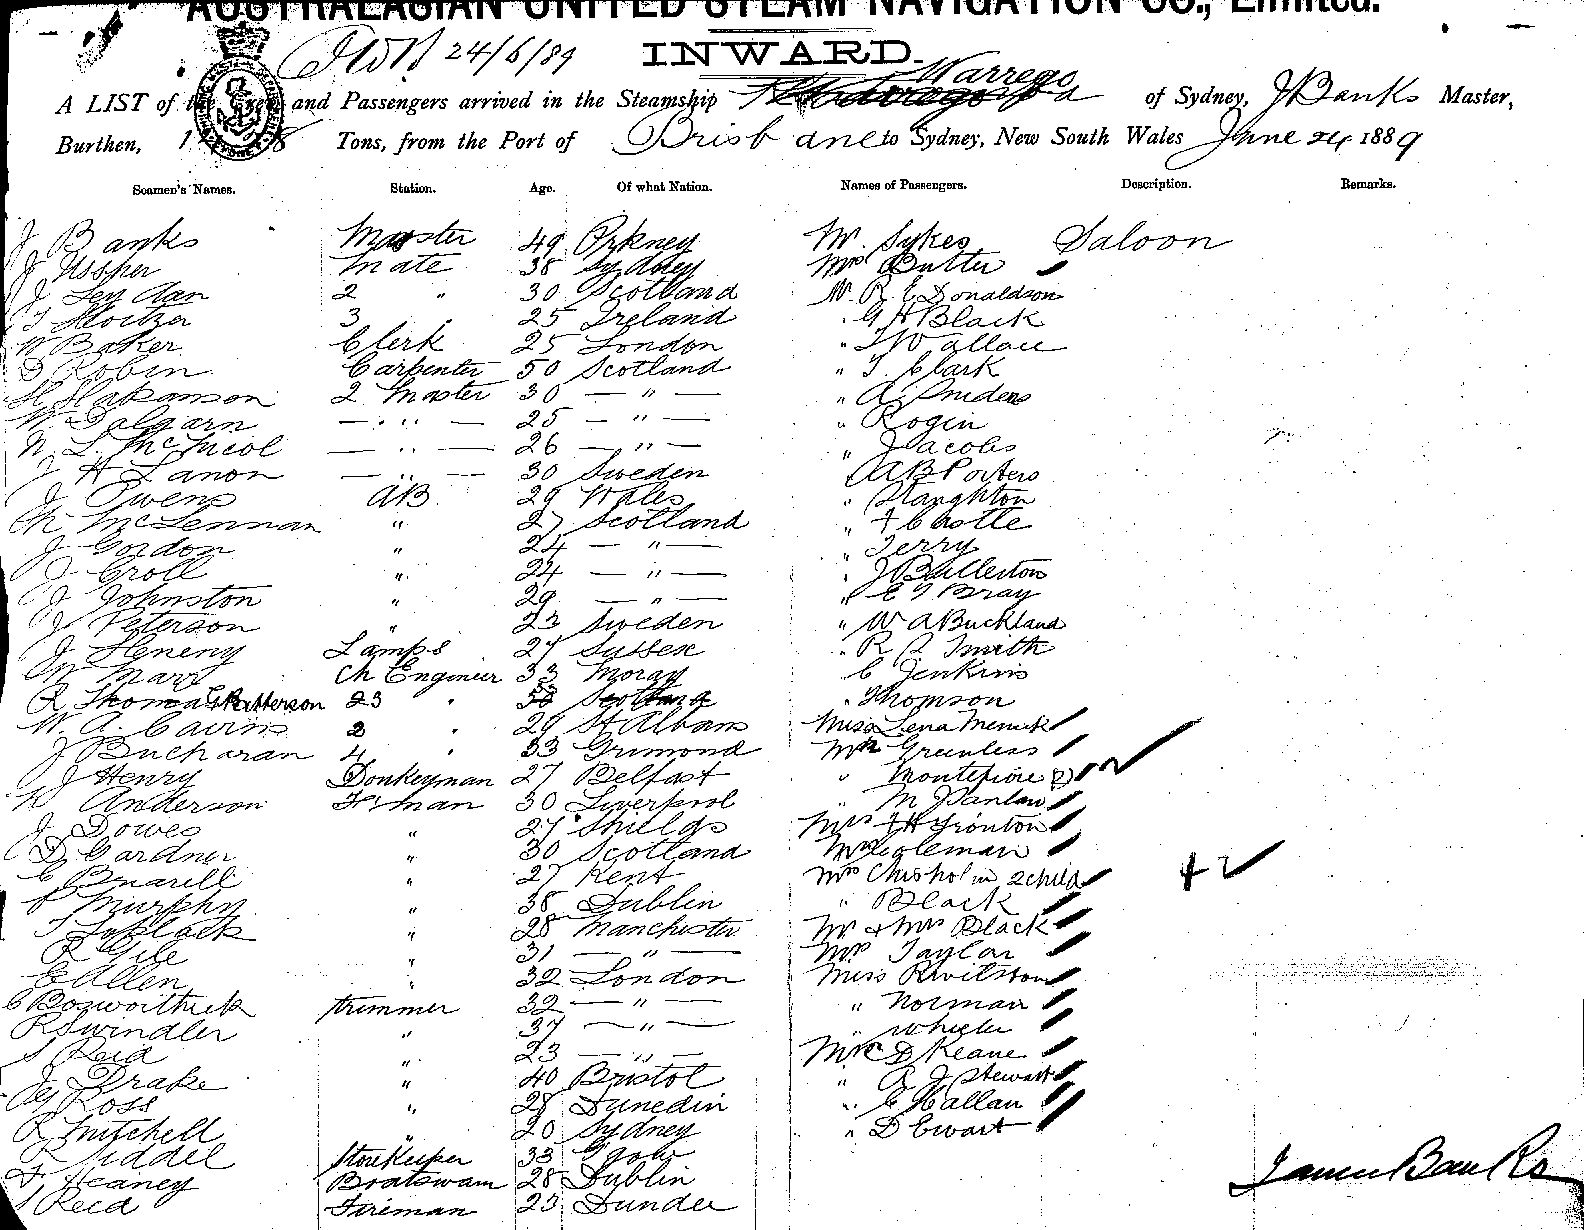 AUSTRALASIAN UNITED STEAM NAVIGATION CO., Limited.
24/6/89 INWARD.
Warrego
A LIST of the Crew and Passengers arrived in the Steamship of Sydney, J Banks Master,
Burthen, Tons, from the Port of Brisbane to Sydney, New South Wales June 24 1889
Seamen's Names. Station. Age. Of what Nation. Names of Passengers. Description. Remarks.
J Banks Master 49 Orkney Mr. Sykes Saloon
J Ussher Mate 38 Sydney Mrs Butter
J 2 " 30 Scotland Mr. R. E Donaldson
3 25 Ireland " G H Black
W Baker Clerk 25 London " Wallace
D Robin Carpenter 50 Scotland " J. Clark
H Hakanson 2 Master 30 — " — " A
W. Dalgarn — " — 25 — " — " Rogin
N. L. McNicol — " — 26 — " — " J Jacobs
J H Lanon — " — 30 Sweden A B Porters
J Owens AB 29 Wales " Slaughton
M McLennan " 27 Scotland " Castle
J Gordon " 24 — " — " Terry
J Croll " 24 — " — " J Bullerton
J Johnston " 29 — " — " E J Bray
J Peterson " 23 Sweden " W A Buckland
J Heneny Lamps 27 Sussex " R Smith
W Marr Ch Engineer 33 Moray C Jenkins
R Thomas Patterson 23 " 50 Scotland " Thomson
W. A. Cairns 2 " 29 St Albans Miss Lena
J Bucharan 4 " 33 Grimond Mr Greenless
J Henry Donkeyman 27 Belfast " Montefiore
Anderson F. man 30 Liverpool " M
J Dowes " 27 Shields Mrs Tronton
D Gardner " 30 Scotland Mr Coleman
C " 27 Kent Mrs Chisholm 2 child 42
P Murphy " 38 Dublin " Black
T " 28 Manchester Mr & Mrs Black
R Gile " 31 — " — Mrs Taylor
E Allen " 32 London Miss
C Bosworthick trimmer 32 — " — " Norman
R Swindler " 37 — " — " Wheeler
S Reid " 23 — " — Mr C D Keane
J Drake " 40 Bristol " A J Stewart
Ross " 28 Dunedin " C Hallan
R Mitchell " 20 Sydney " D Ewart
R Siddel Storekeeper 33
Heaney Boatswain 28 Dublin
S Reid Fireman 23 Dundee
James Banks